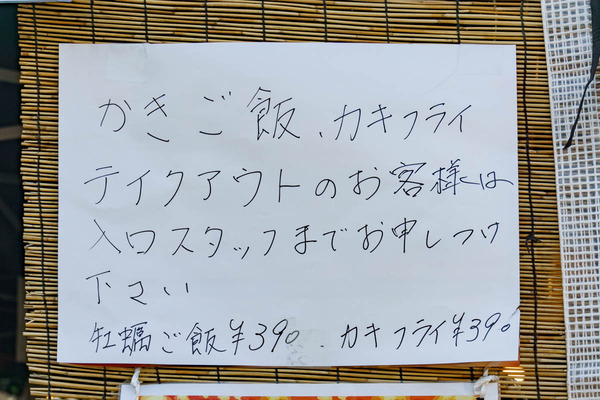 かきご飯、カキフライ
テイクアウトのお客様は
入口スタッフまでお申しつけ
下さい
牡蠣ご飯¥390、カキフライ¥390